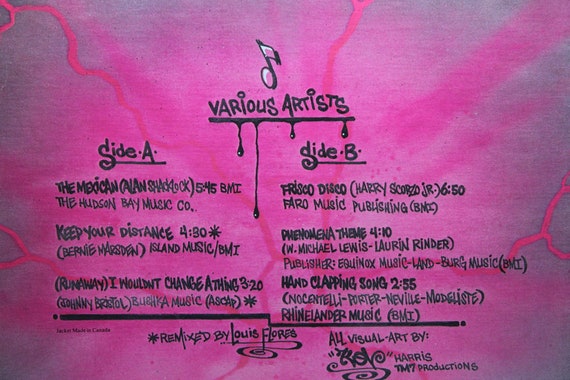 VARIOUS ARTISTS
Side·A·
THE MEXICAN (ALAN SHACKLOCK) 5:45 BMI
THE HUDSON BAY MUSIC CO.
KEEP YOUR DISTANCE 4:30 *
(BERNIE MARSDEN) ISLAND MUSIC/BMI
(RUNAWAY) I WOULDNT CHANGE A THING 3:20
(JOHNNY BRISTOL) BUSHKA MUSIC (ASCAP) *
Side·B·
FRISCO DISCO (HARRY SCORZO JR.) 6:50
FARO MUSIC PUBLISHING (BMI)
PHENOMENA THEME 4:10
(W. MICHAEL LEWIS-LAURIN RINDER)
PUBLISHER: EQUINOX MUSIC-LAND-BURG MUSIC (BMI)
HAND CLAPPING SONG 2:55
(NOCENTELLI-PORTER-NEVILLE-MODELISTE)
RHINELANDER MUSIC (BMI)
Jacket Made in Canada
*REMIXED BY LOUIS FLORES
ALL VISUAL-ART BY:
HARRIS
TM7 PRODUCTIONS